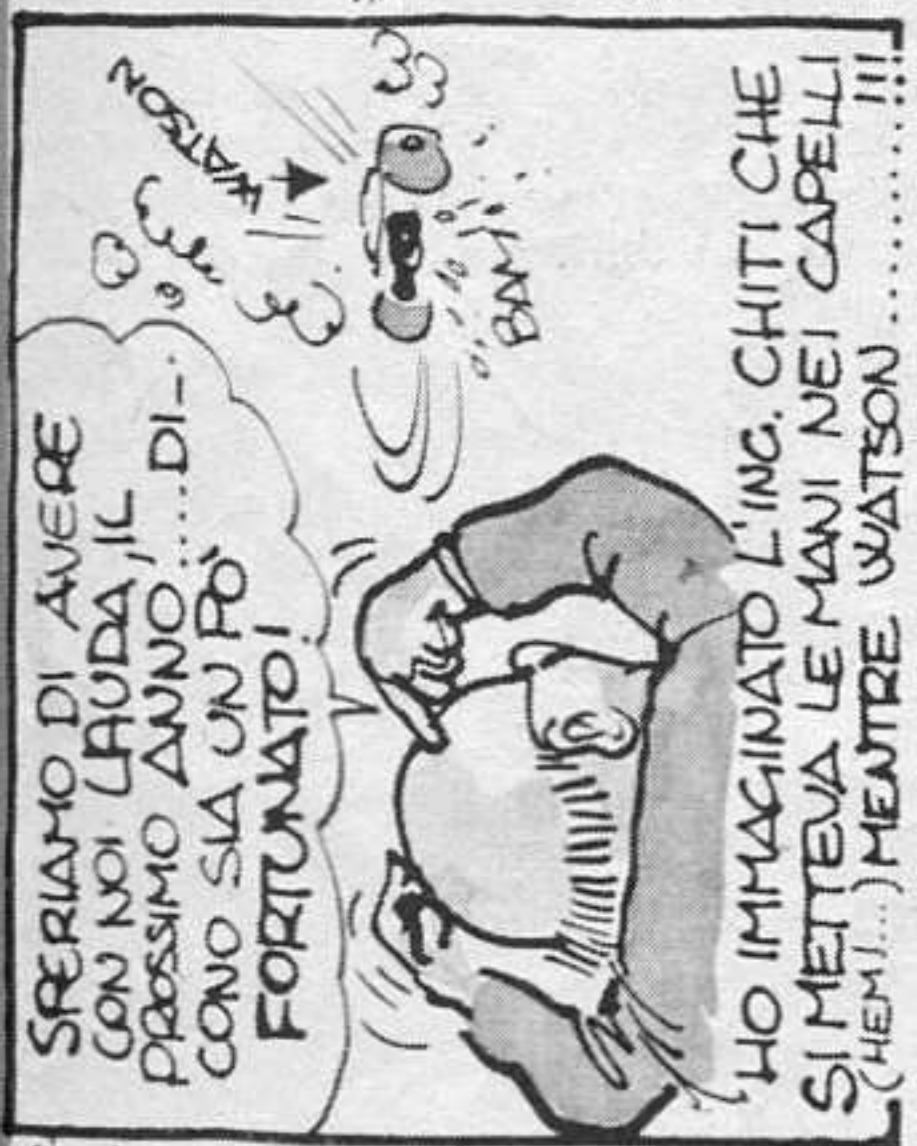 SPERIAMO DI AVERE
CON NOI LAUDA, IL
PROSSIMO ANNO.....DI-
CONO SIA UN PÒ
FORTUNATO!
WATSON
BAM!
HO IMMAGINATO L'ING. CHITI CHE
SI METTEVA LE MANI NEI CAPELLI
(HEM!...) MENTRE WATSON ..........!!!